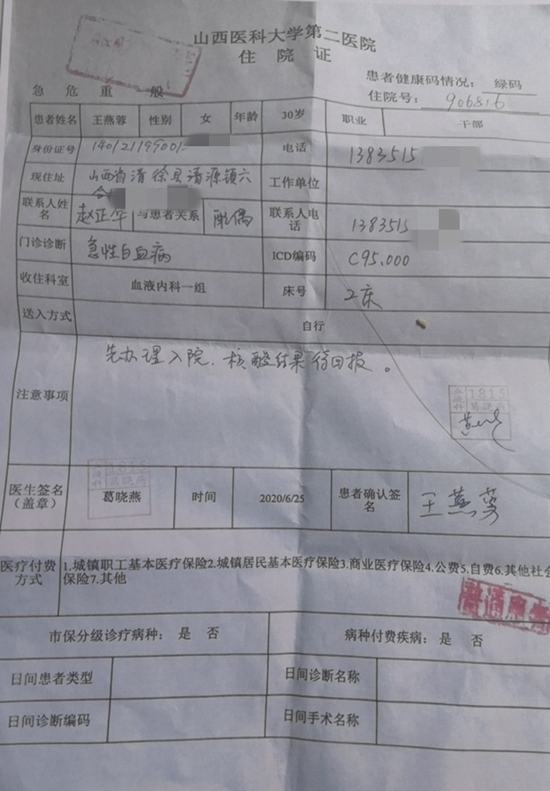 山西医科大学第二医院
住院证
患者健康码情况：绿码
急 危 重 般 住院号：906816
患者姓名 王燕蓉 性别 女 年龄 30岁 职业 干部
身份证号 140121199001 电话 1383515
现住址 山西省清徐县清源镇六合 工作单位
联系人姓名 赵正华 与患者关系 配偶 联系人电话 1383515
门诊诊断 急性白血病 ICD编码 C95.000
收住科室 血液内科一组 床号 2床
送入方式 自行
注意事项 先办理入院，核酸结果待回报。
1815
医生签名（盖章） 葛晓燕 1815 时间 2020/6/25 患者确认签名 王燕蓉
医疗付费方式 1.城镇职工基本医疗保险2.城镇居民基本医疗保险3.商业医疗保险4.公费5.自费6.其他社会
保险7.其他
普通患者
市保分级诊疗病种：是 否 病种付费疾病：是 否
日间患者类型 日间诊断名称
日间诊断编码 日间手术名称